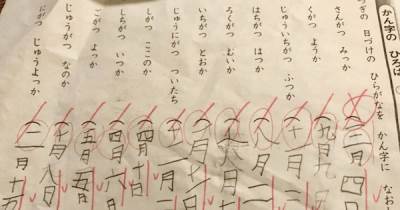 かん字の ひろば
ぎの 日づけの ひらがなを かん字に なおし
さんがつ みっか
(三月四
くがつ ようか
(九月九
じゅういちがつ ふつか
(十一月
はちがつ はつか
(八月二
ろくがつ むいか
(六月
いちがつ とおか
(一月
じゅうにがつ ついたち
しがつ ここのか
(四月十
しちがつ いつか
(四月六
ごがつ よっか
(五月五
じゅうがつ なのか
(十月八日
にがつ じゅうよっか
(二月十五